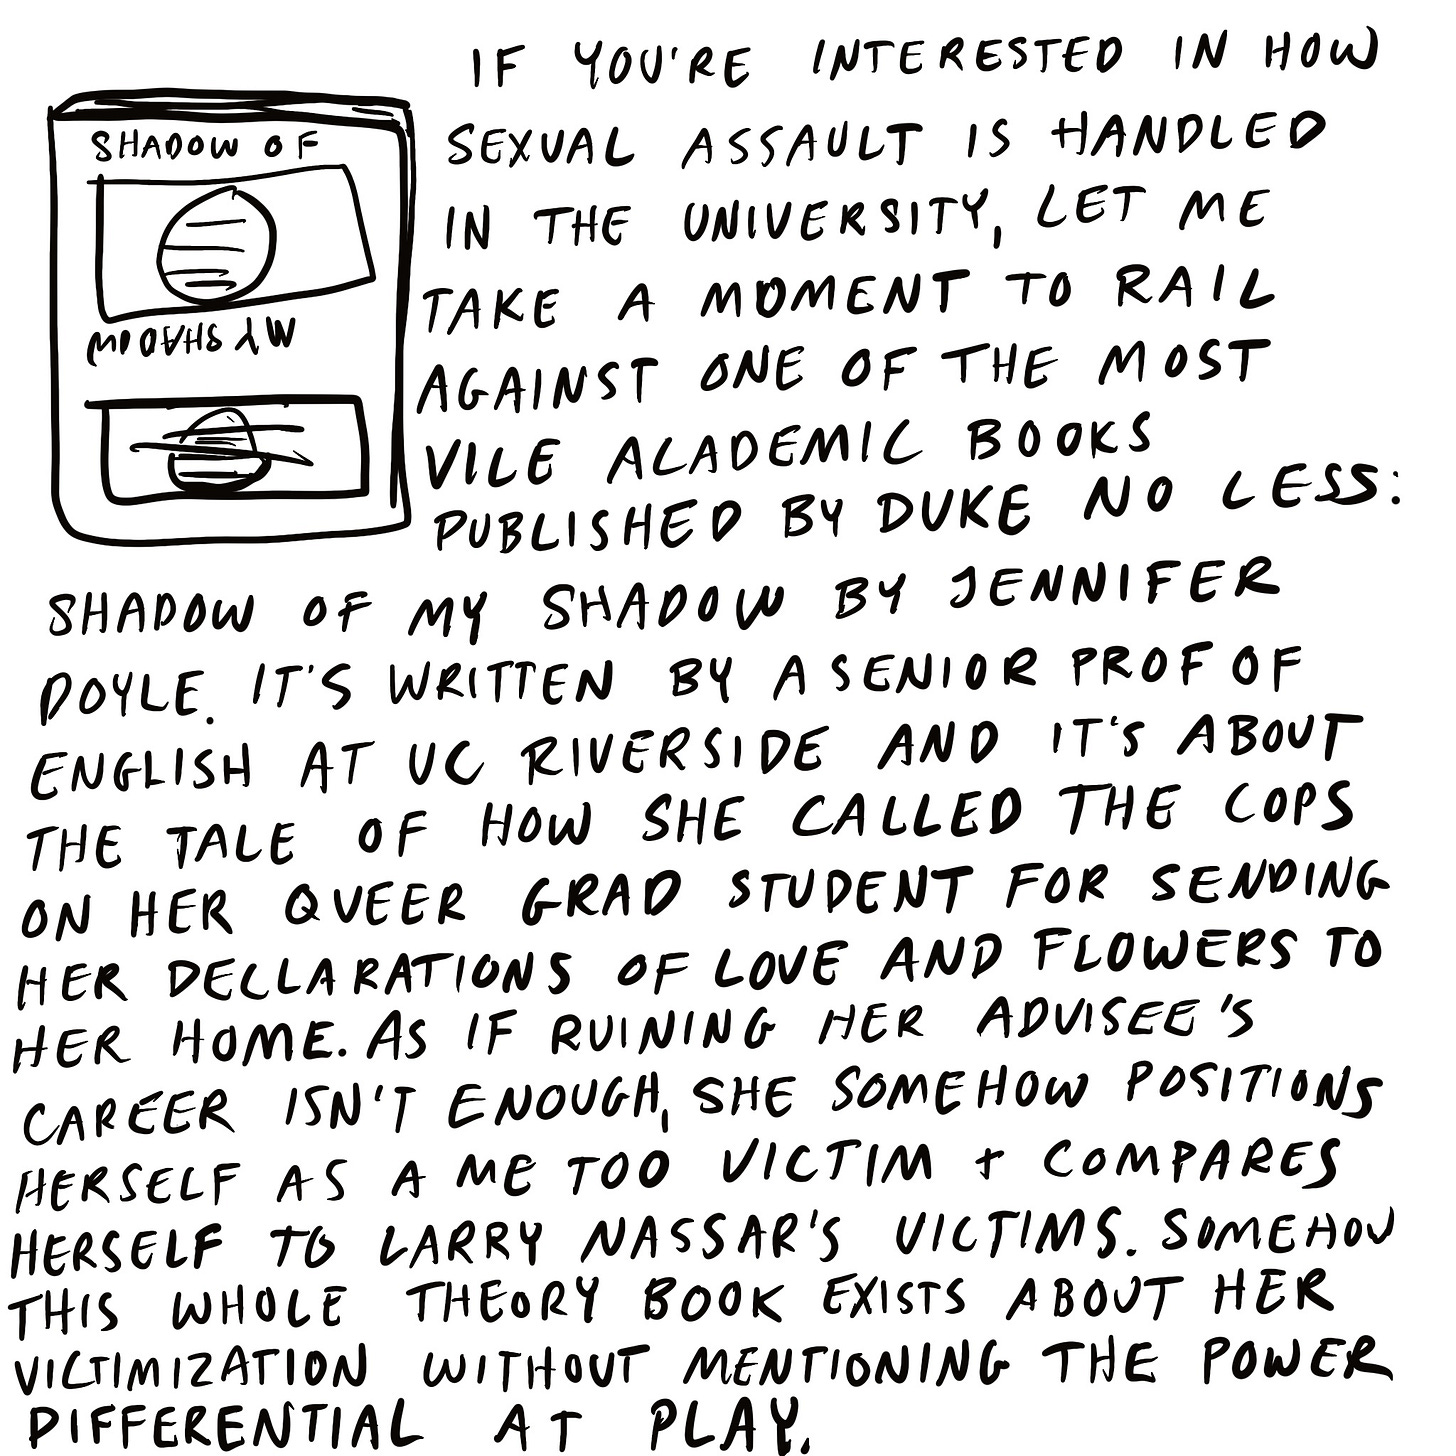 IF YOU'RE INTERESTED IN HOW
SEXUAL ASSAULT IS HANDLED
IN THE UNIVERSITY, LET ME
TAKE A MOMENT TO RAIL
AGAINST ONE OF THE MOST
VILE ACADEMIC BOOKS
PUBLISHED BY DUKE NO LESS:
SHADOW OF
MY SHADOW
SHADOW OF MY SHADOW BY JENNIFER
DOYLE. IT'S WRITTEN BY A SENIOR PROF OF
ENGLISH AT UC RIVERSIDE AND IT'S ABOUT
THE TALE OF HOW SHE CALLED THE COPS
ON HER QUEER GRAD STUDENT FOR SENDING
HER DECLARATIONS OF LOVE AND FLOWERS TO
HER HOME. AS IF RUINING HER ADVISEE'S
CAREER ISN'T ENOUGH, SHE SOMEHOW POSITIONS
HERSELF AS A ME TOO VICTIM + COMPARES
HERSELF TO LARRY NASSAR'S VICTIMS. SOMEHOW
THIS WHOLE THEORY BOOK EXISTS ABOUT HER
VICTIMIZATION WITHOUT MENTIONING THE POWER
DIFFERENTIAL AT PLAY.